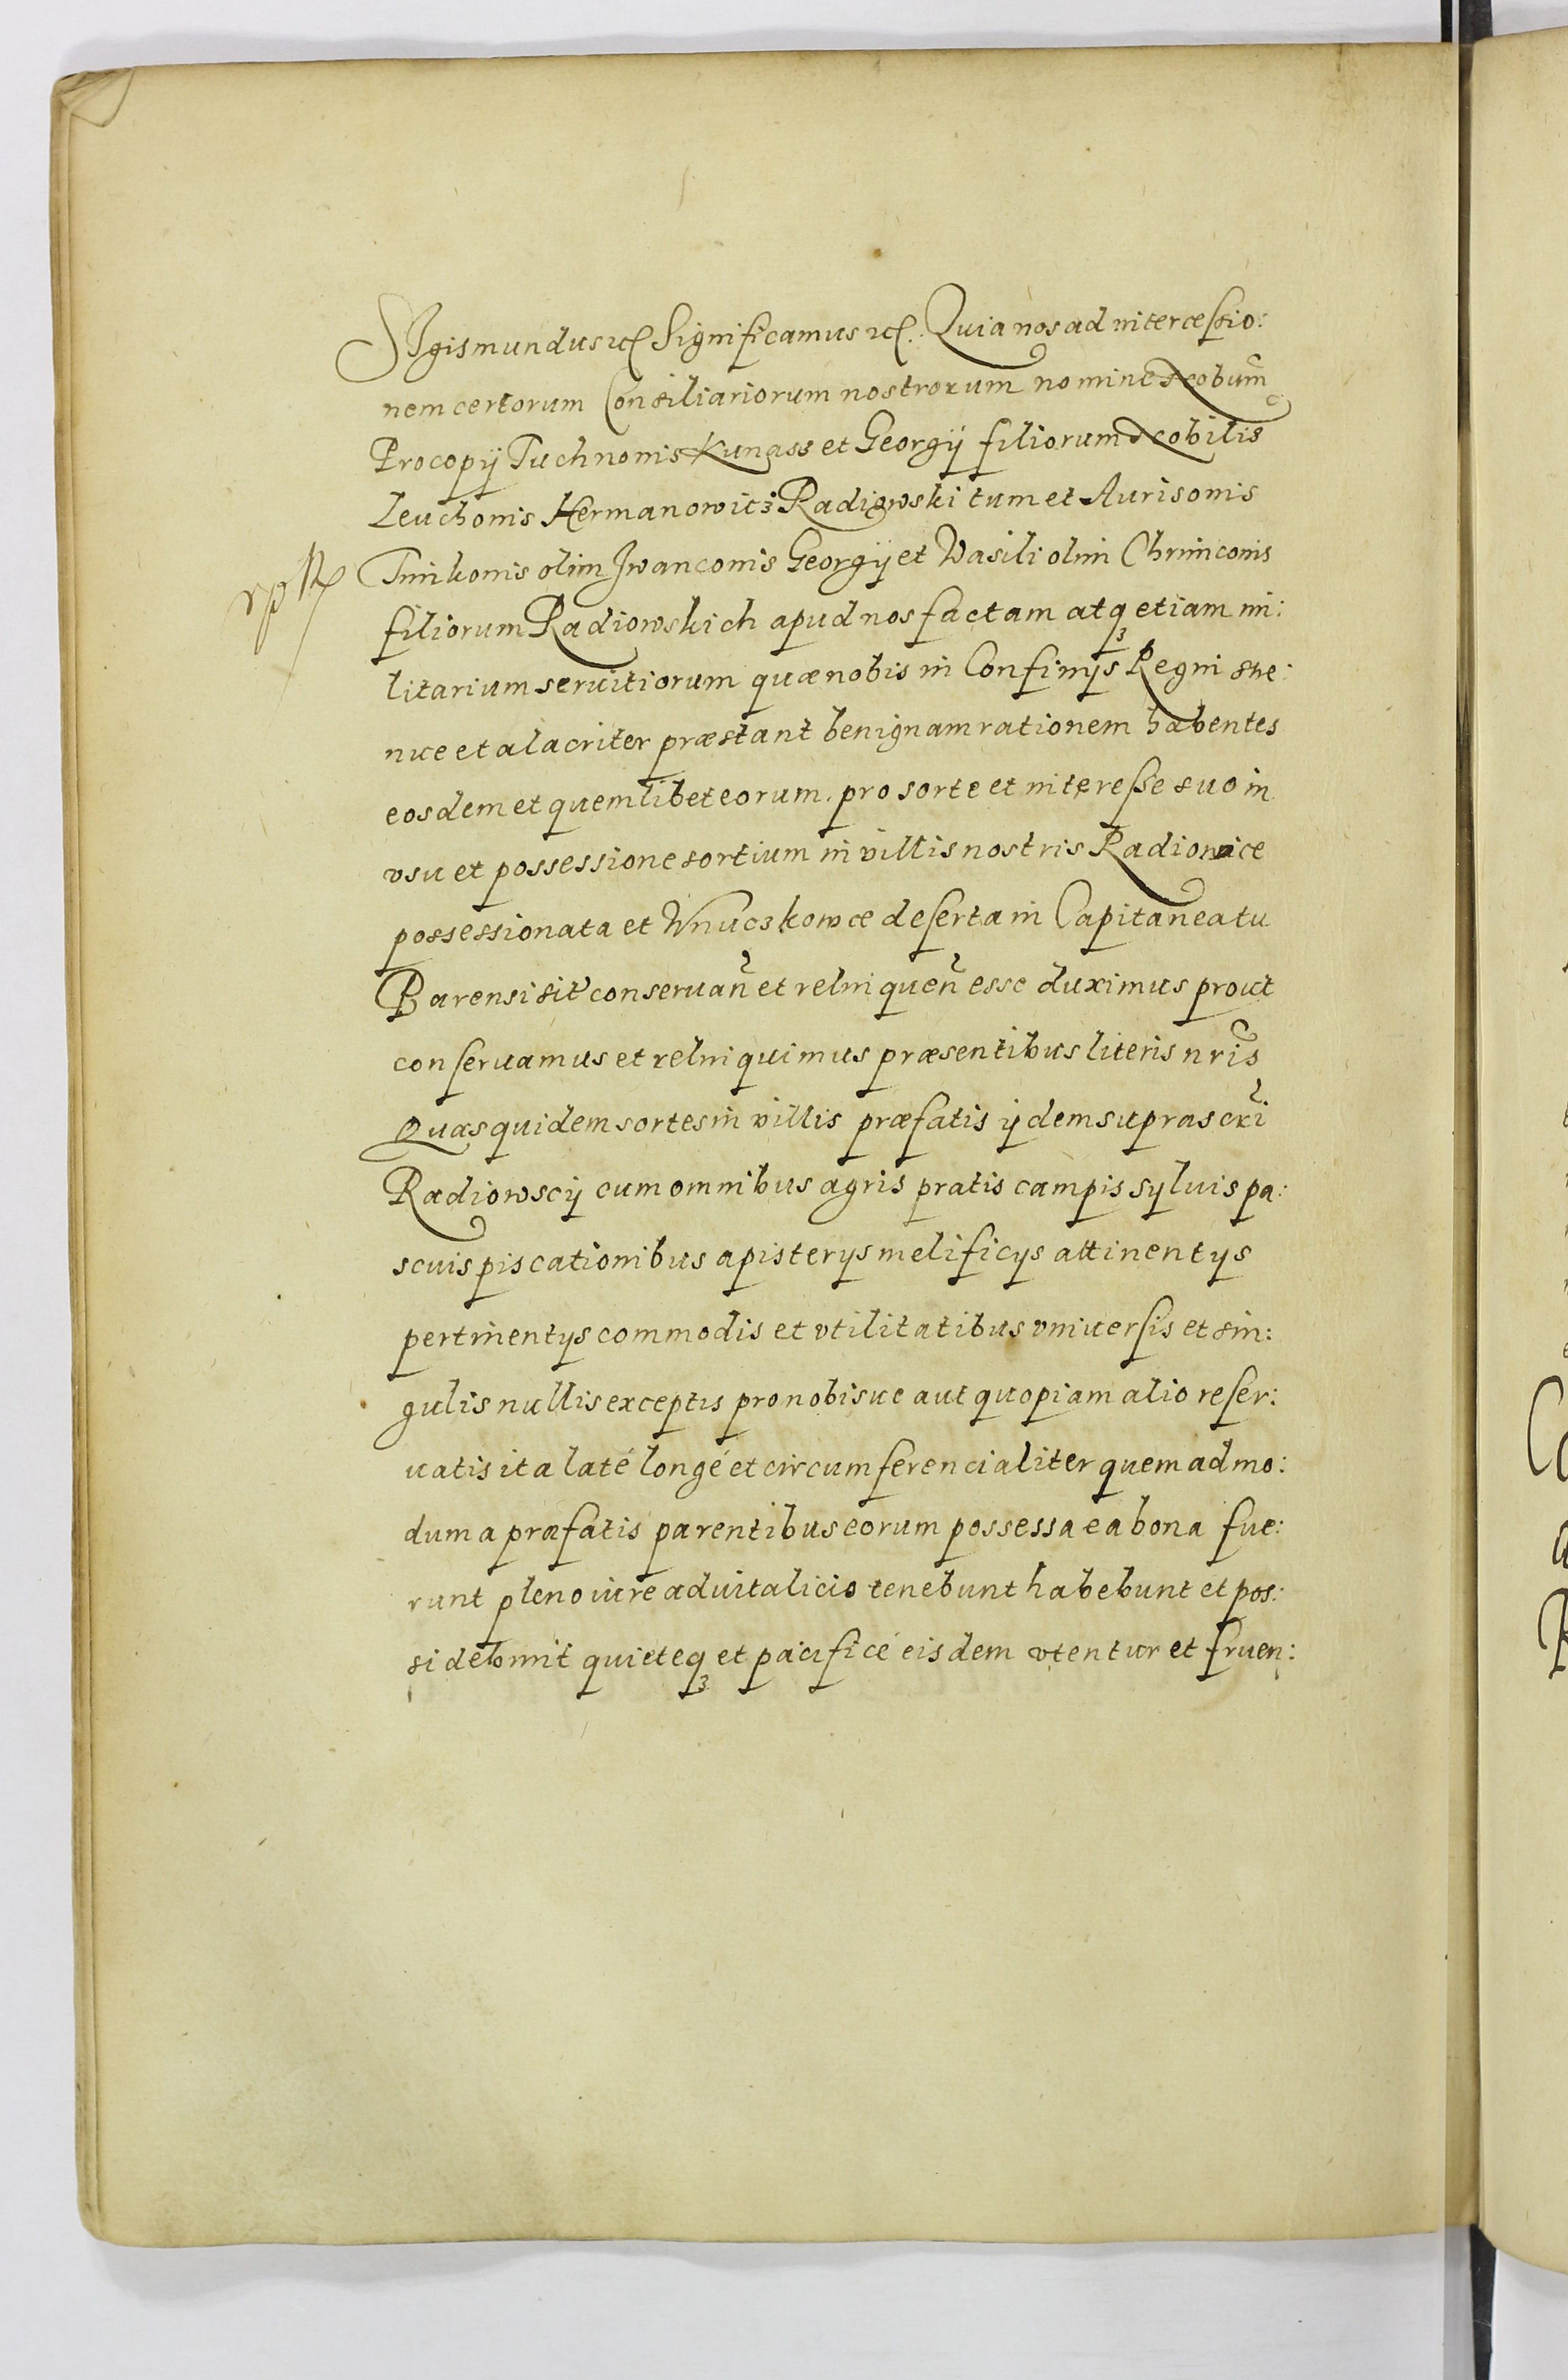 SIgismundus etc Significamus etc. Quia nos ad intercessio:
nem certorum Consiliariorum nostrorum nomine Nobilium
Procopij Tuchnonis Kunass et Georgij filiorum Nobilis
Leuchonis Hermanowicz Radiowski tum et Aurisonis
Timkonis olim Iwanconis Georgij et Wasili olim Chrinconis
filiorum Radiowskich apud nos factam atq3 etiam mi:
litarium seruitiorum quæ nobis in Confinijs Regni stre:
nue et alacriter præstant benignam rationem habentes
eosdem et quemlibet eorum pro sorte et interesse suo in
vsu et possessione sortium in villis nostris Radiowice
possessionata et Wnuczkowce deserta in Capitaneatu
Barensi sit conseruan̄ et relinquen̄ esse duximus prout
conseruamus et relinquimus præsentibus literis nris
Quas quidem sortes in villis præfatis ijdem suprascri
Radiowscij cum omnibus agris pratis campis syluis pa:
scuis piscationibus apisterijs melificijs attinentijs
pertinentijs commodis et vtilitatibus vniuersis et sin:
gulis nullis exceptis pro nobisue aut quopiam alio reser:
uatis ita laté longé et circumferencialiter quemadmo:
dum a præfatis parentibus eorum possessa ea bona fue:
runt pleno iure aduitalicio tenebunt habebunt et pos:
sidebunt quieteq3 et pacificé eisdem vtentur et fruen: